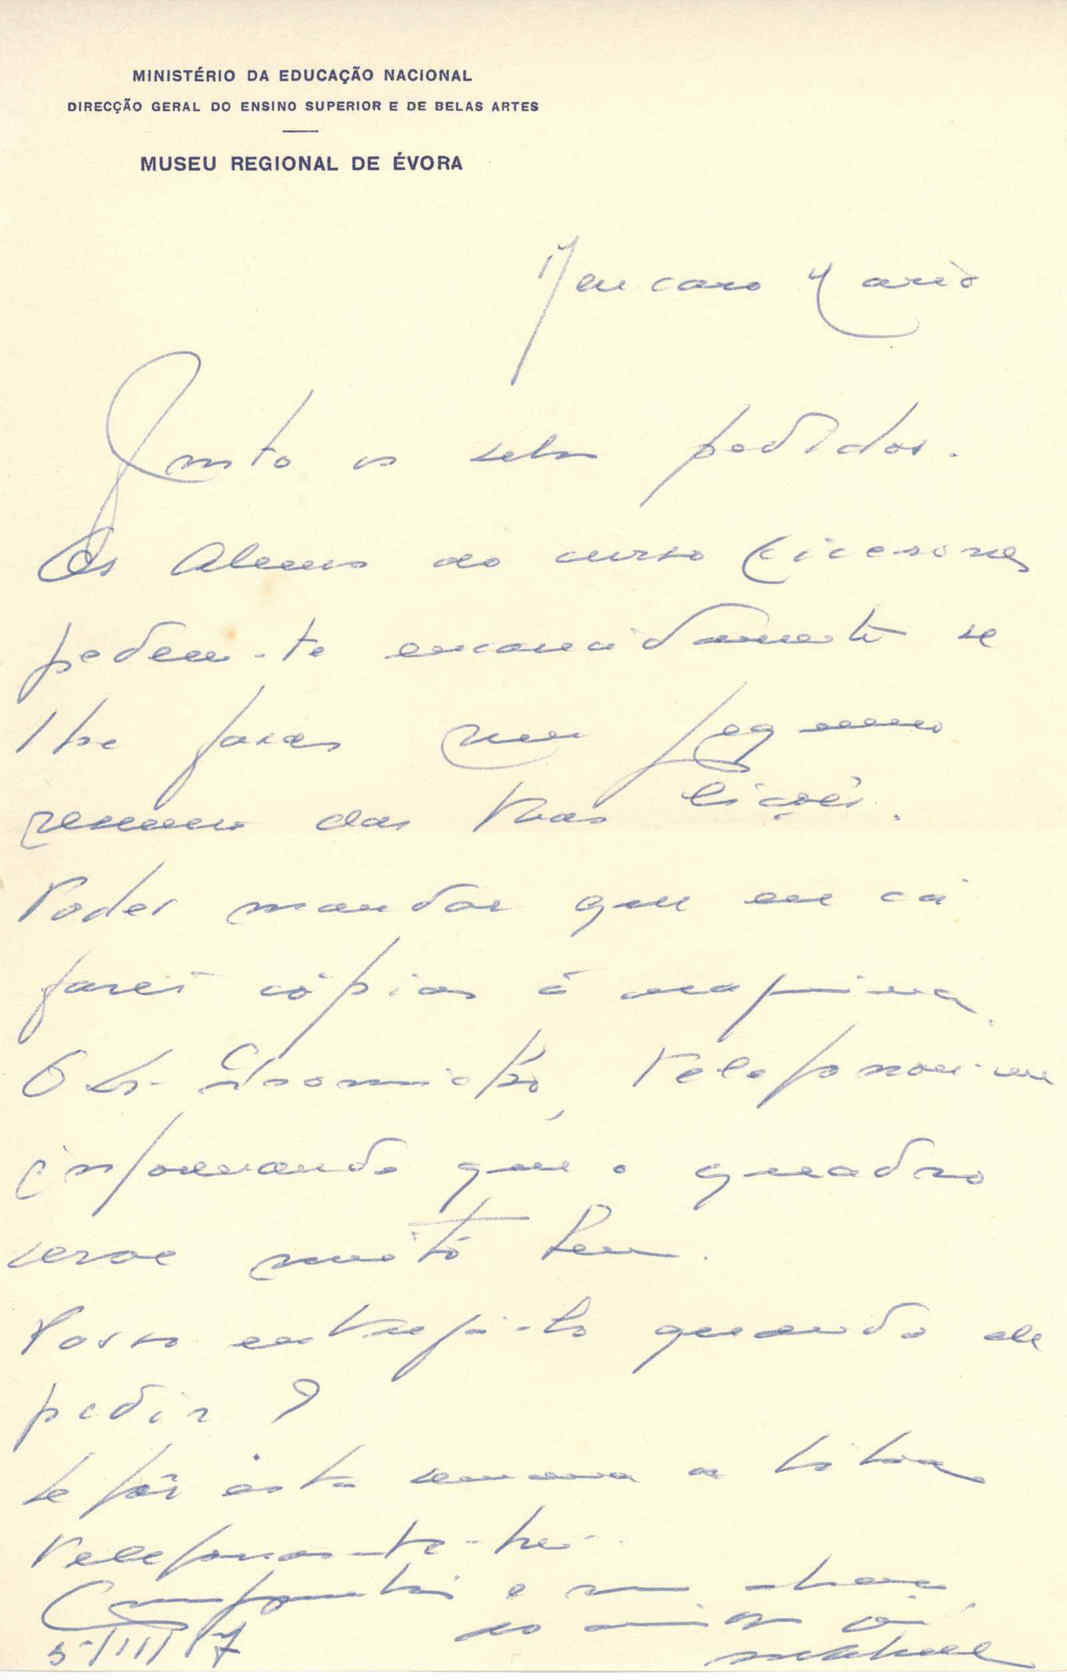 MINISTÉRIO DA EDUCAÇÃO NACIONAL
DIRECÇÃO GERAL DO ENSINO SUPERIOR E DE BELAS ARTES
MUSEU REGIONAL DE ÉVORA
Meu caro Mario
Junto os seus pedidos.
Os alunos do curso Cicerones
pedem-te encarecidamente se
lhe fazes um pequeno
resumo das tuas lições.
Podes mandar que eu cá
farei cópias à maquina.
O Sr. telefonou-me
informando que o quadro
serve muito bem.
Posso entregá-lo quando ele
pedir?
Se fôr esta semana a Lisboa
telefonar-te-hei.
Cumprimentos e um abraço
do amigo
5/III/ 7